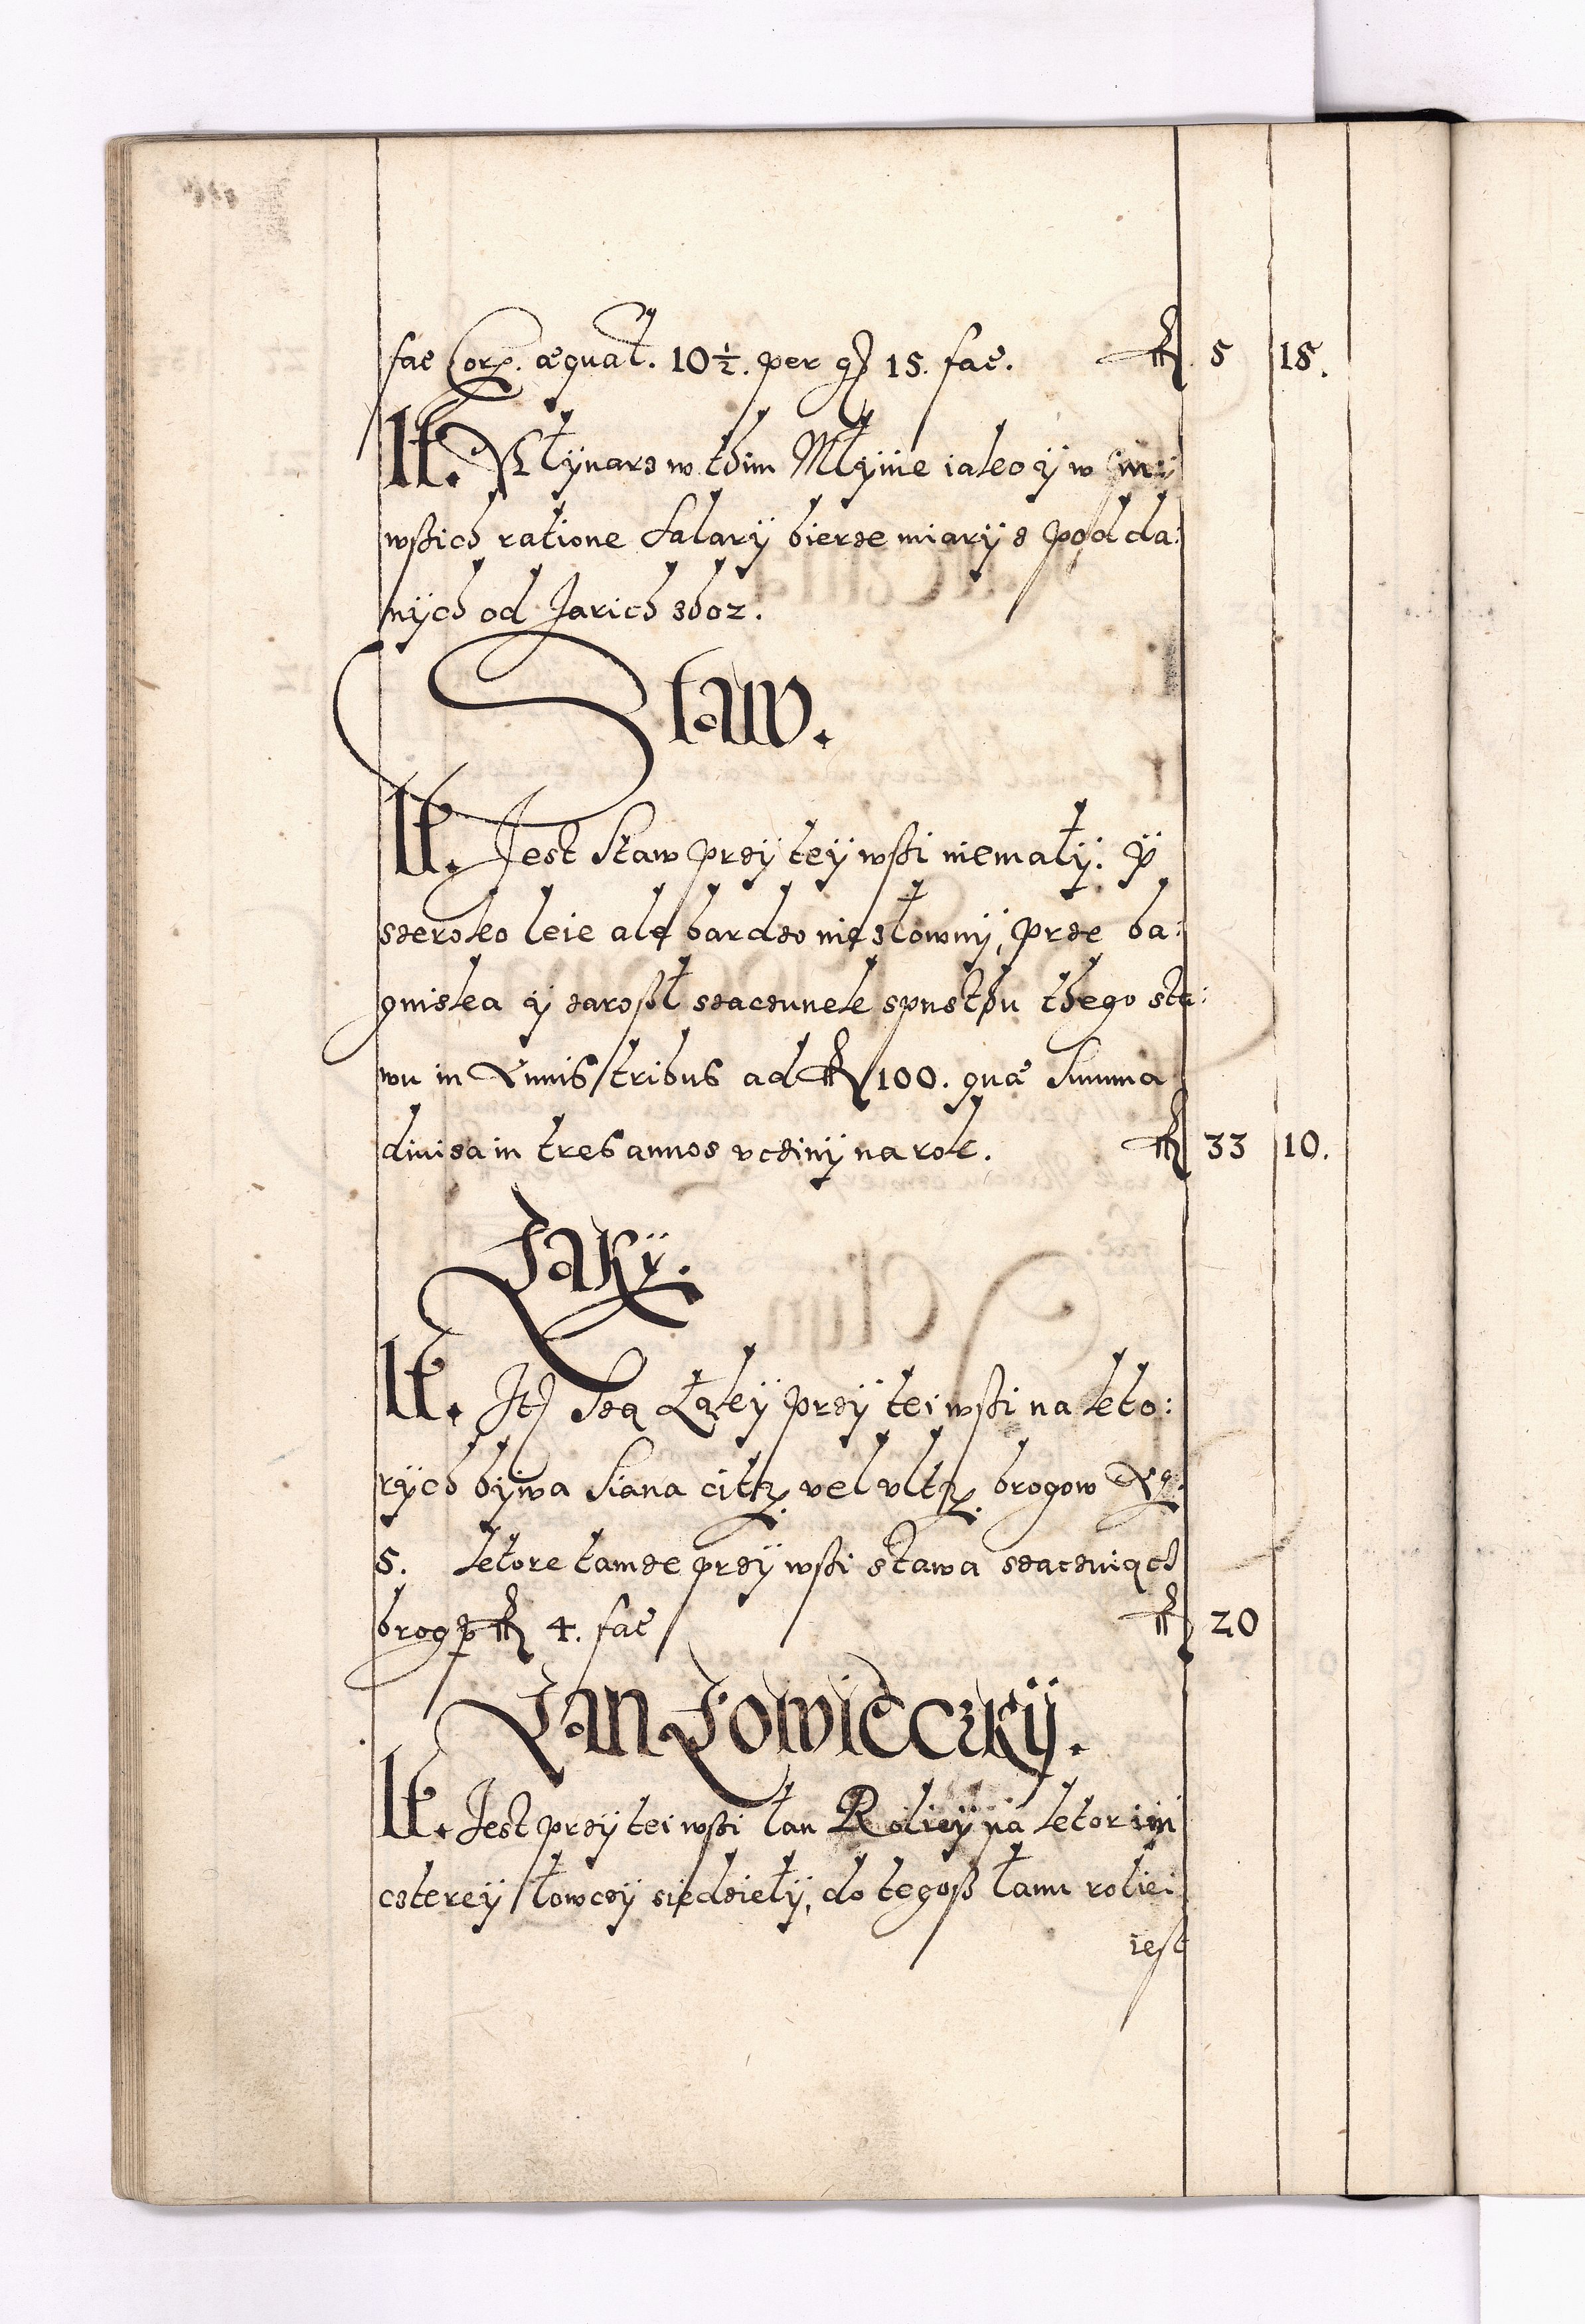 fac Cor. æqual. 10½. per gs 15. fac. fl 5 18.
It. Młÿnarz w thim Młÿnie iako ÿ w inÿ
wßich ratione Salarÿ bierze miarÿ z Podda:
nÿch od Jarich zboz.
Staw.
It. Jest Staw przÿ teÿ wßi niemałÿ. ÿ
szeroko leie ale bardzo niezłownÿ, prze ba:
gniska ÿ zarosł szaczunek spusthu thego sta:
wu in Annis tribus ad fl 100. quæ Summa
diuisa in tres annos vczinÿ na rok. fl 33 10.
Łakÿ.
It. Sza Łąkÿ przÿ tei wßi na kto:
rÿch bÿwa Siana citr. vel vltr. brogow
5. ktore tamze przÿ wßi stawa szacziąch
brog p fl 4. fac fl 20
Łan Łowieczkÿ.
It. Jest przÿ tei wßi łan Roliey na ktorim
cztereÿ łowczÿ siedzielÿ, do tegoß łanu roliei
iest